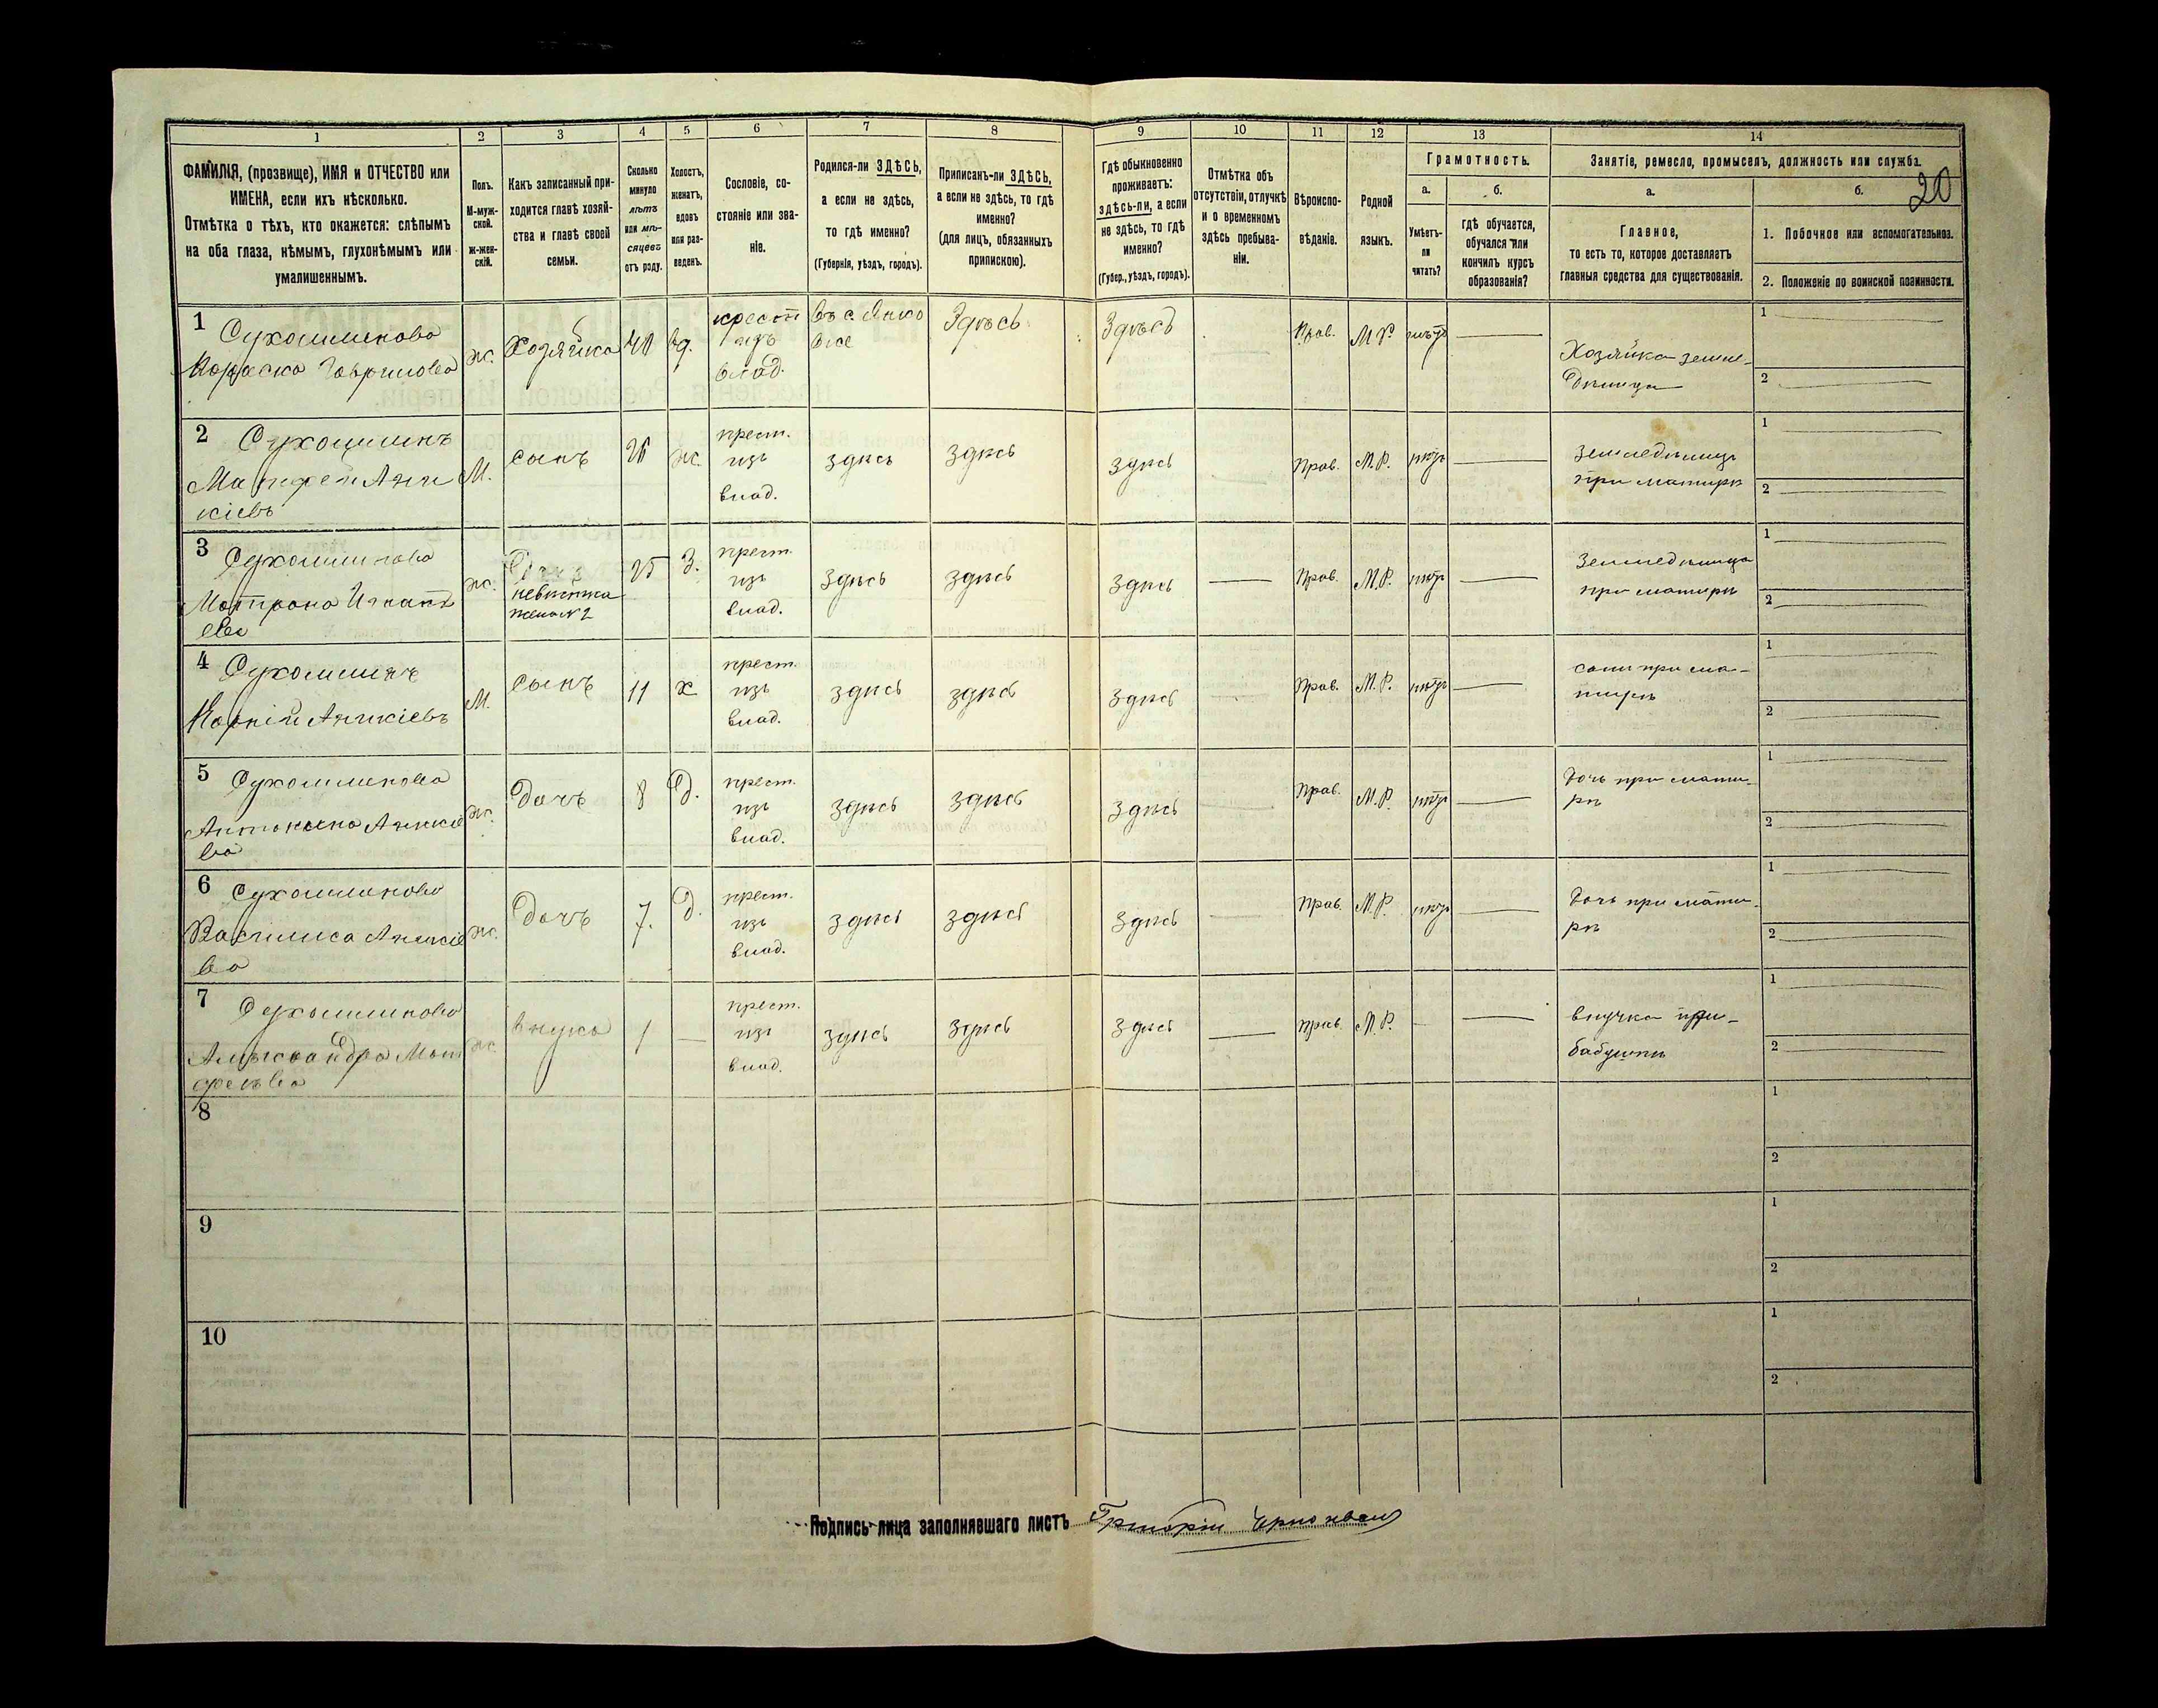 1 2 3 4 5 6 7 8 9 10 11 12 13 14
20
ФАМИЛІЯ, (прозвище), ИМЯ и ОТЧЕСТВО или
ИМЕНА, если ихъ нѣсколько.
Отмѣтка о тѣхъ, кто окажется: слѣпымъ
на оба глаза, нѣмымъ, глухонѣмымъ или
умалишеннымъ.
Полъ.
М-муж-
ской.
Ж-жен-
скій.
Какъ записанный при-
ходится главѣ хозяй-
ства и главѣ своей
семьи.
Сколько
минуло
лѣтъ
или мѣ-
сяцевъ
отъ роду.
Холостъ,
женатъ,
вдовъ
или раз-
веденъ.
Сословіе, со-
стояніе или зва-
ніе.
Родился-ли ЗДѢСЬ,
а если не здѣсь,
то гдѣ именно?
(Губернія, уѣздъ, городъ).
Приписанъ-ли ЗДѢСЬ,
а если не здѣсь, то гдѣ
именно?
(для лицъ, обязанныхъ
припискою).
Гдѣ обыкновенно
проживаетъ:
здѣсь-ли, а если
не здѣсь, то гдѣ
именно?
(Губер., уѣздъ, городъ).
Отмѣтка объ
отсутствіи, отлучкѣ
и о временномъ
здѣсь пребыва-
ніи.
Вѣроиспо-
вѣданіе.
Родной
языкъ.
Грамотность.
а.
Умѣетъ-
ли
читать?
б.
гдѣ обучается,
обучался или
кончилъ курсъ
образованія?
Занятіе, ремесло, промыселъ, должность или служба.
а.
Главное,
то есть то, которое доставляетъ
главныя средства для существованія.
б.
1. Побочное или вспомогательное.
2. Положеніе по воинской повинности.
1
Гаврилова
ж.
Хозяйка
40
вд.
изъ
влад.
Здѣсь
Здѣсь
Прав.
М.Р.
нѣтъ
Хозяйка земле-
дѣлица
1
2
2
Сухомлинъ
Матфей Ани
кіевъ
М.
сынъ
26
ж.
крест.
изъ
влад.
здѣсь
здѣсь
здѣсь
Прав.
М.Р.
нѣтъ
земледѣлецъ
при матирѣ
1
2
3
Сухомлинова
Матрона Игнатъ
ева
ж.
невѣстка
жена №2
25
З.
крест.
изъ
влад.
здѣсь
здѣсь
здѣсь
Прав.
М.Р.
нѣтъ
земледѣлица
при матирѣ
1
2
4
Сухомлинъ
Корній Аникіевъ
М.
сынъ
11
х
крест.
изъ
влад.
здѣсь
здѣсь
здѣсь
Прав.
М.Р.
нѣтъ
сынъ при ма-
тирѣ
1
2
5
Сухомлинова
Аникіе
ва
ж.
дочъ
8
д.
крест.
изъ
влад.
здѣсь
здѣсь
здѣсь
Прав.
М.Р.
нѣтъ
дочь при мати-
рѣ
1
2
6
Сухомлинова
Василиса Аникіе
ва
ж.
дочъ
7.
д.
крест.
изъ
влад.
здѣсь
здѣсь
здѣсь
Прав.
М.Р.
нѣтъ
дочь при мати-
рѣ
1
2
7
Сухомлинова
Александра Мат
феева
ж.
внука
1
крест.
изъ
влад.
здѣсь
здѣсь
здѣсь
прав.
М.Р.
внучка при-
бабушкѣ
1
2
8
1
2
9
1
2
10
1
2
Подпись лица заполнявшаго листъ Григорій